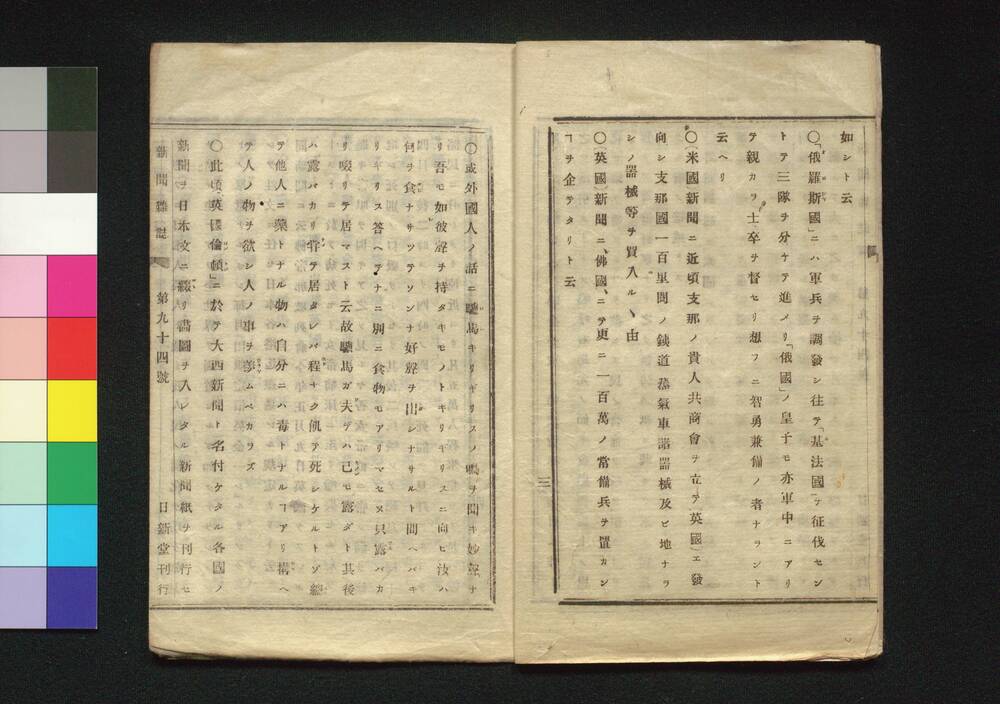 如シト云
○「俄羅斯國」ニハ軍兵ヲ調發シ往テ「基法國」ヲ征伐セン
トテ三隊ヲ分ケテ進メリ「俄國」ノ皇子モ亦軍中ニアリ
テ親カラ士卒ヲ督セリ想フニ智勇兼備ノ者ナラント
云ヘリ
○米國新聞ニ近頃支那ノ貴人共商會ヲ立テ英國ニ發
向シ支那國一百里間ノ銕道蒸氣車諸器械及ヒ地ナラ
シノ器械等ヲ買入ルヽ由
○英國新聞ニ、佛國、ニテ更ニ一百萬ノ常備兵ヲ置カン
ヿヲ企テタリト云
三
○或外國人ノ話ニ驢馬キリギリスノ鳴ヲ聞キ妙聲ナ
リ吾モ如彼聲ヲ持タキモノトキリギリスニ向ヒ汝ハ
何ヲ食ナサツテソンナ好聲ヲ出シナサルト問ヘバキ
リギリス答ヘテナニ別ニ食物モアリマセヌ只露バカ
リ啜リテ居マスト云故驢馬ガ夫デハ己モ露ダト其後
ハ露バカリ甞テ居タレバ程ナク飢テ死シケルトゾ總
テ他人ニ藥トナル物ハ自分ニハ毒トナルヿアリ構ヘ
テ人ノ物ヲ欲シ人ノ事ヲ羨ムベカラズ
○此頃「英國倫頓」ニ於テ大西新聞ト名付ケタル各國ノ
新聞ヲ日本文ニ綴リ畵圖ヲ入レタル新聞紙ヲ刊行セ
新聞雜誌 第九十四號 日新堂刊行